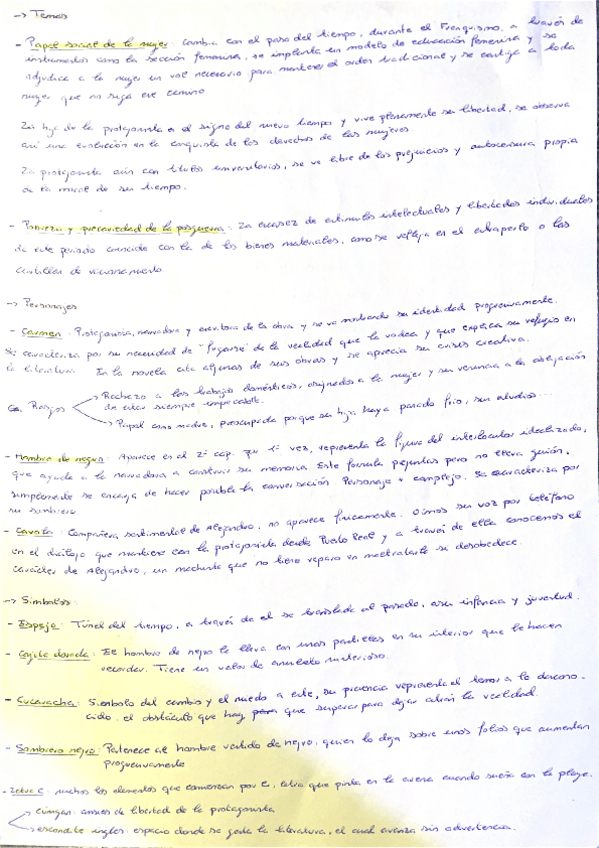 -> Temas
- Papel social de la mujer: Cambia con el paso del tiempo, durante el Franquismo, a través de
instrumentos como la sección femenina, se implanta un modelo de educación femenina y se
adjudica a la mujer un rol necesario para mantener el orden tradicional y se castiga a toda
mujer que no siga ese camino.
La hija de la protagonista es el signo del nuevo tiempo y vive plenamente su libertad, se observa
así una evolución en la conquista de los derechos de las mujeres.
La protagonista aún con títulos universitarios, se ve libre de los prejuicios y autocensura propia
de la moral de su tiempo.
- Pobreza y precariedad de la posguerra: La escasez de estímulos intelectuales y libertades individuales
de este periodo coincide con la de los bienes materiales, como se refleja en el estraperlo o las
cartillas de racionamiento.
-> Personajes
- Carmen: Protagonista, narradora y escritora de la obra y se va mostrando su identidad progresivamente.
Se caracteriza por su necesidad de "fugarse" de la realidad que la rodea y que explica su refugio en
la literatura. En la novela cita algunas de sus obras y se aprecia su crisis creativa.
Rasgos
Rechazo a los trabajos domésticos, asignados a la mujer y su renuncia a la obligación
de estar siempre impecable.
Papel como madre, preocupada porque su hija haya pasado frío, sus estudios...
- Hombre de negro: Aparece en el 2º cap. por 1ª vez, representa la figura del interlocutor idealizado,
que ayuda a la narradora a construir su memoria. Este formula preguntas pero no lleva guión,
simplemente se encarga de hacer posible la conversación. Personaje + complejo. Se caracteriza por
su sombrero
- Carola: Compañera sentimental de Alejandro, no aparece físicamente. Oímos su voz por teléfono
en el diálogo que mantiene con la protagonista desde Puerto Real y a través de ella conocemos el
carácter de Alejandro, un machista que no tiene reparo en maltratarla si desobedece.
-> Símbolos:
- Espejo: Túnel del tiempo, a través de él se traslada al pasado, a su infancia y juventud.
- Cajita dorada: El hombre de negro la lleva con unas pastillas en su interior que la hacen
recordar. Tiene un valor de amuleto misterioso.
- Cucaracha: Símbolo del cambio y el miedo a este, su presencia representa el temor a lo descono-
cido, el obstáculo que hay que superar para dejar atrás la realidad.
- Sombrero negro: Pertenece al hombre vestido de negro, quien lo deja sobre unos folios que aumentan
progresivamente
- Letra C: muchos los elementos que comienzan por C, letra que pinta en la arena cuando sueña con la playa.
cúnigan: ansias de libertad de la protagonista
escondite inglés: espacio donde se gesta la literatura, el cual avanza sin advertencia.